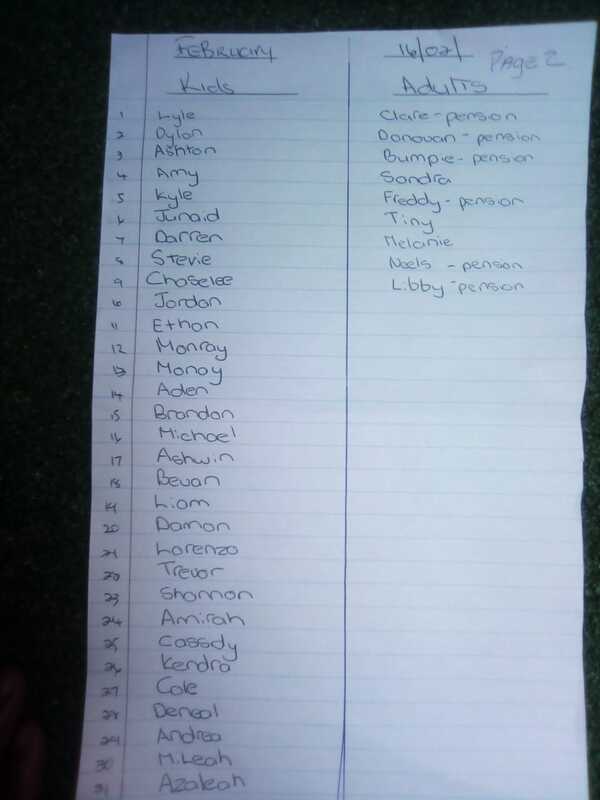 FEBRUARY 16/02/ PAGE 2
Kids Adults
1 Lyle Clare - pension
2 Dylon Donovan - pension
3 Ashton Bumpie - pension
4 Amy Sandra
5 Kyle Freddy - pension
6 Junaid Tiny
7 Darren Melanie
8 Stevie Neels - pension
9 Choselee Libby - pension
10 Jordon
11 Ethan
12 Monray
13 Monoy
14 Aden
15 Brandon
16 Michael
17 Ashwin
18 Bevan
19 Liam
20 Damon
21 Lorenzo
22 Trevor
23 Shannon
24 Amirah
25 Cassidy
26 Kendra
27 Cole
28 Deneal
29 Andrea
30 M.Leah
31 Azaleah